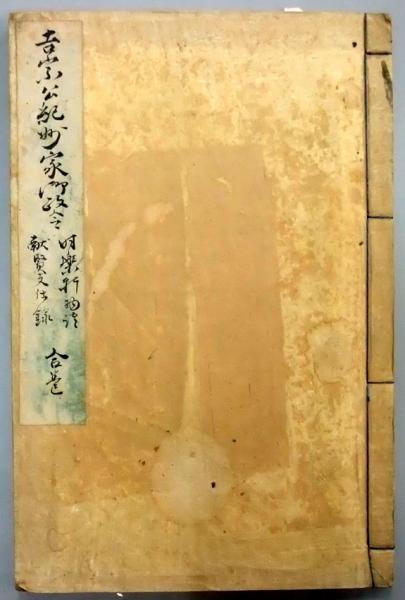 吉宗公紀州家御政令
時樂軒物語
献賢文仕録
合巻